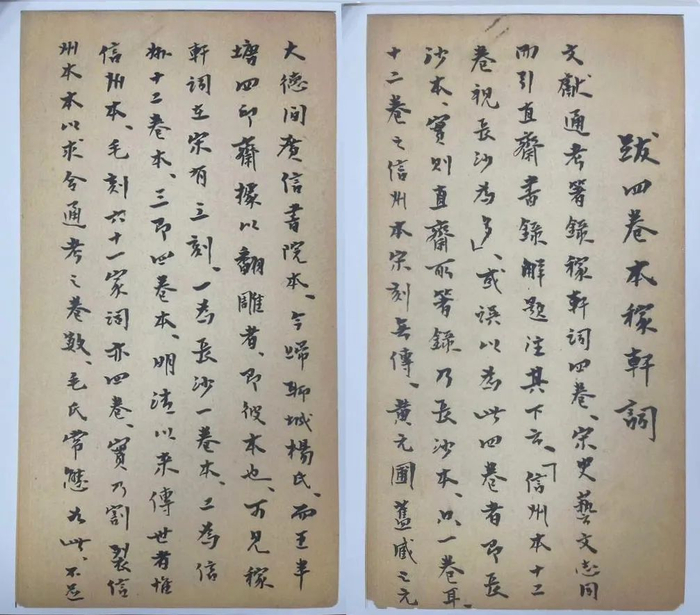 跋四卷本稼軒詞
文獻通考箸錄稼軒詞四卷、宋史藝文志同
而引直齋書錄解題注其下云、「信州本十二
卷視長沙為多」、或誤以為此四卷者即長
沙本、實則直齋所箸錄乃長沙本、只一卷耳、
十二卷之信州本宋刻無傳、黃元圃舊藏之元
大德間廣信書院本、今歸聊城楊氏、而王半
塘四印齋據以翻雕者、即彼本也、可見稼
軒詞在宋有三刻、一為長沙一卷本、二為信
州十二卷本、三即四卷本、明清以來傳世者惟
信州本、毛刻六十一家詞亦四卷、實乃割裂信
州本本以求合通考之卷數、毛氏常態如此、不足